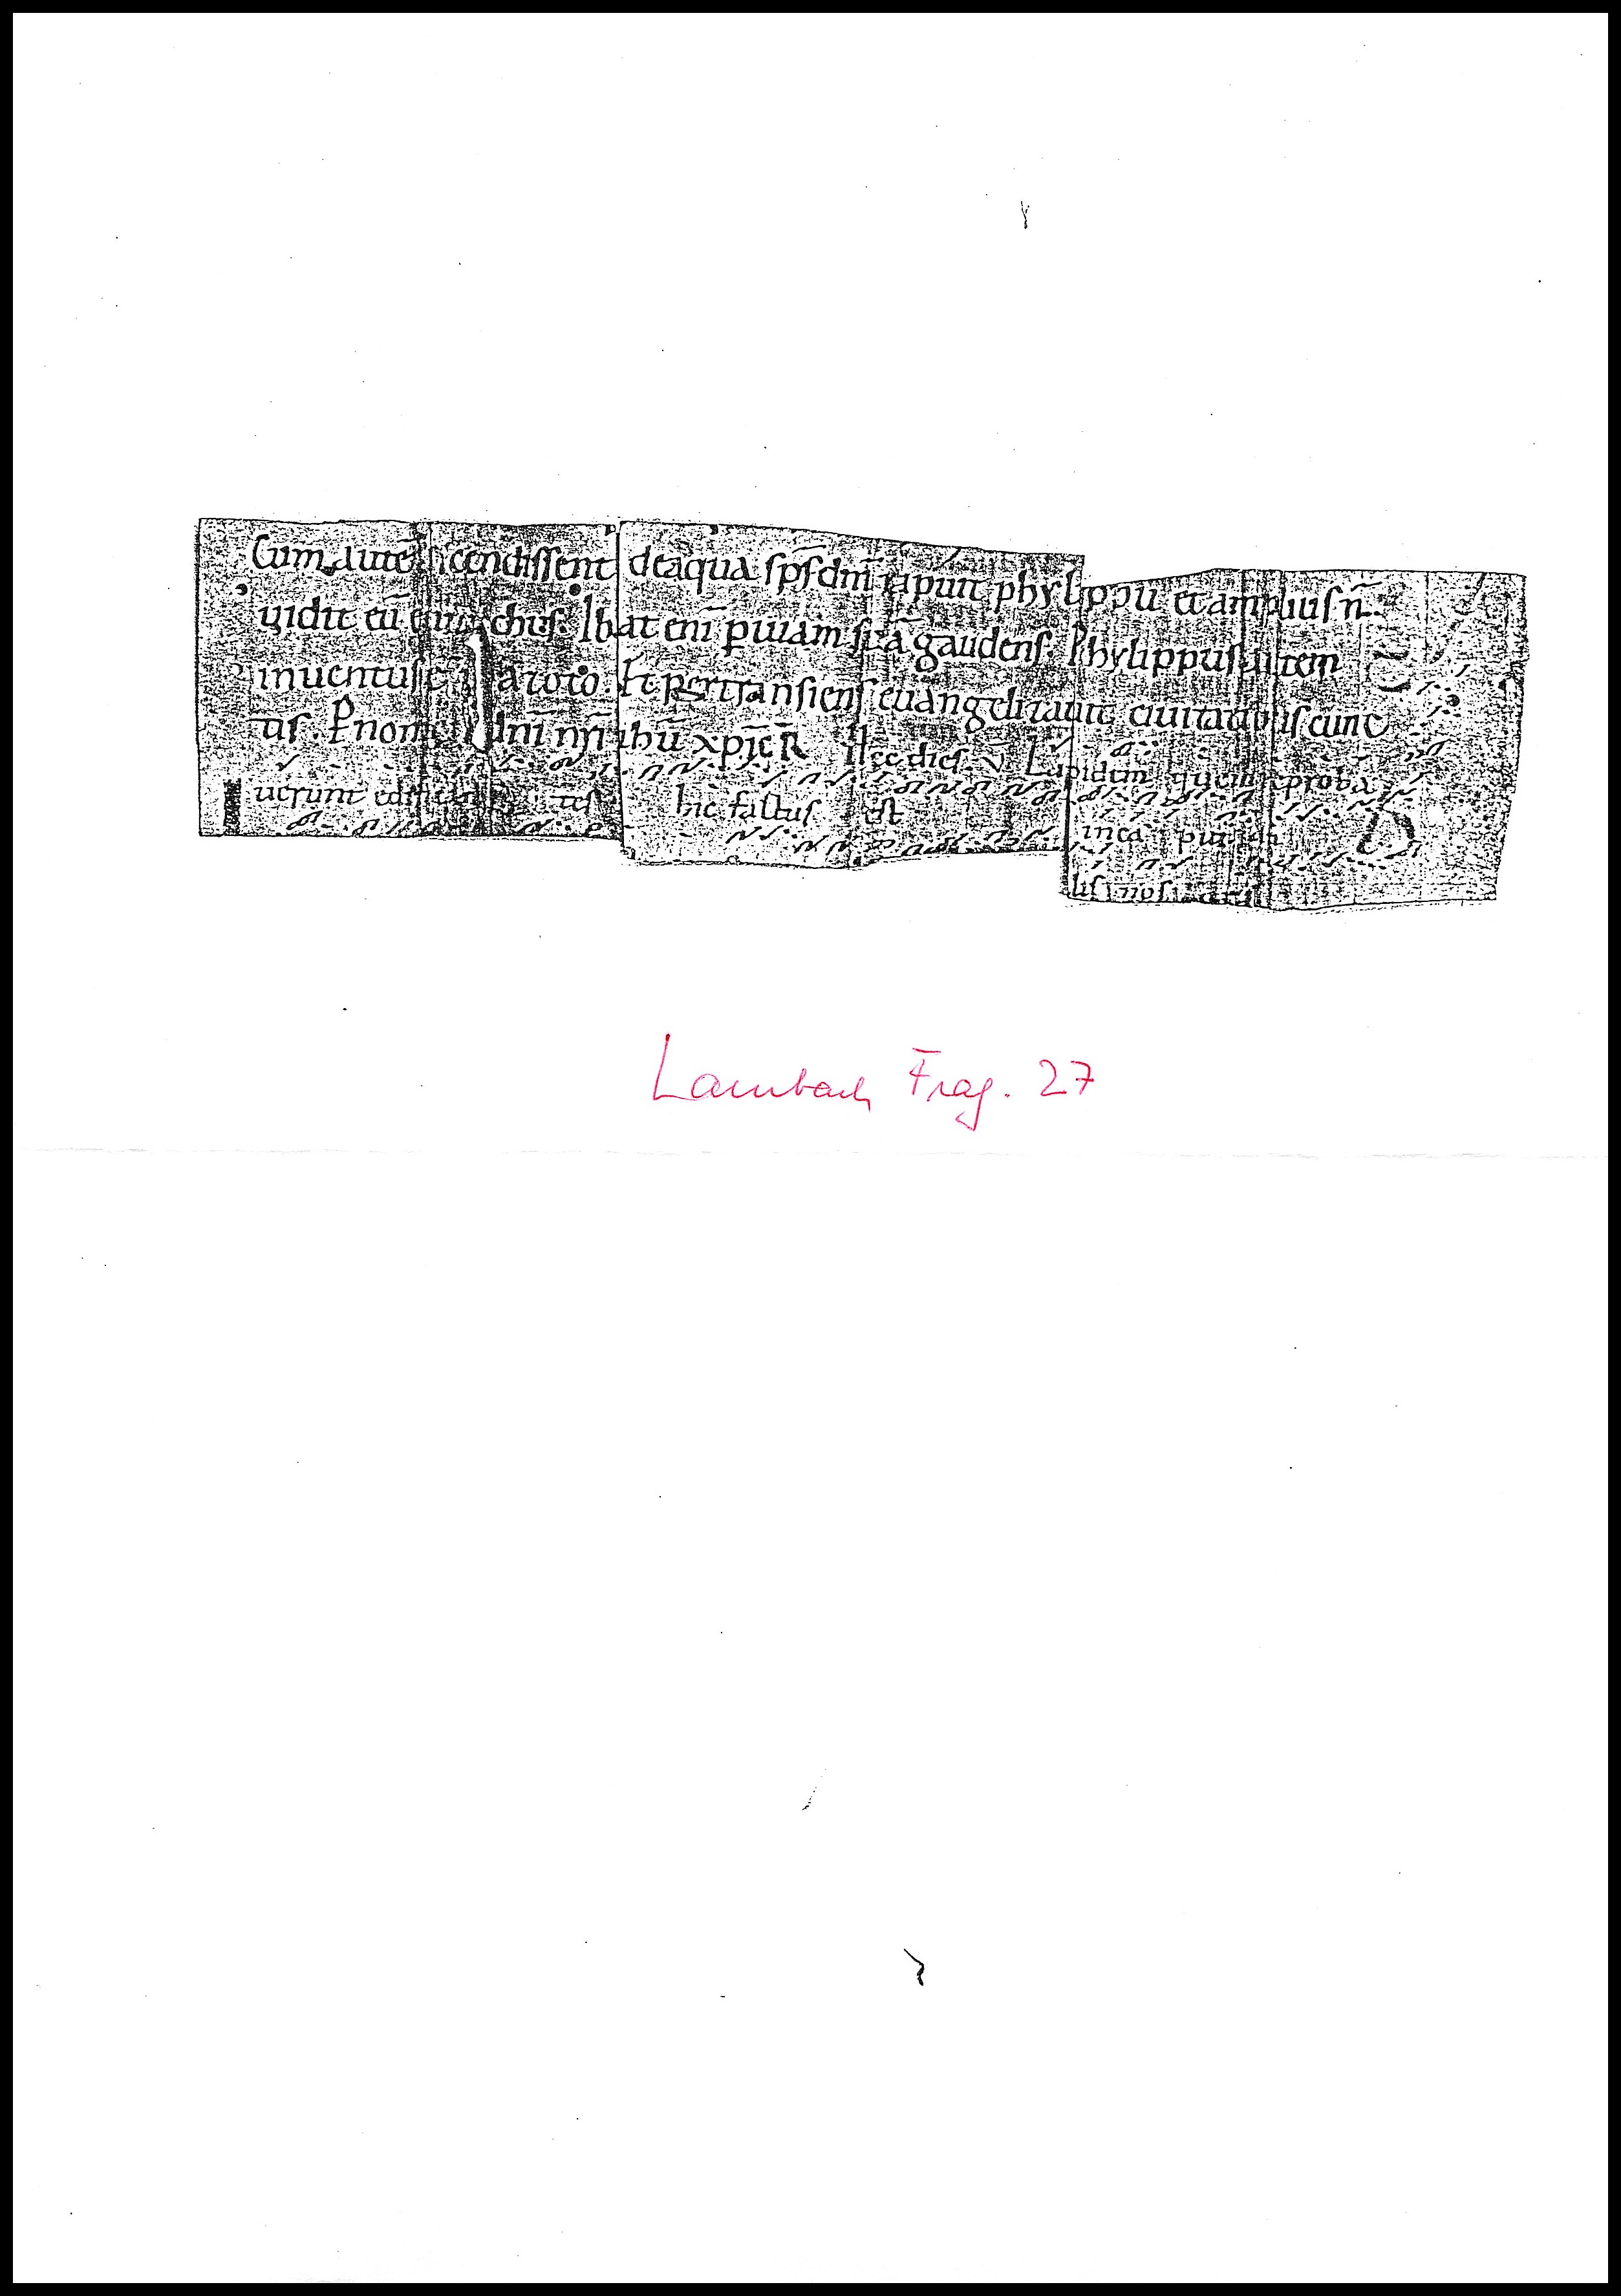 Cum autē ascendissent deaqua sps̄ dnī rapuit phylippū et amplius n̄
vidit eū eunuchus. Ibat enī p̄ uiam suā gaudens. Phylippus autem
inventus ē in azoto. Et pertransiens euangelizauit ciuitatib; iscunc
tis. P̄ nomen dnī nrī ihū xpī. c̄ R̄ Hec dies. v̄ Lapidem quem reproba
uerunt edificantes hic factus est
in ca put an
lis nos
Lambach Frag. 27